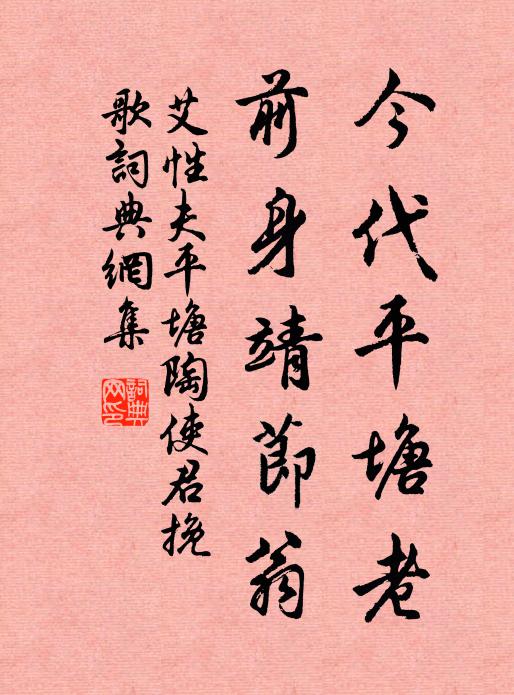 今代平塘老
前身靖節翁
艾性夫平塘陶使君挽
歌詞典網集
詞典網印